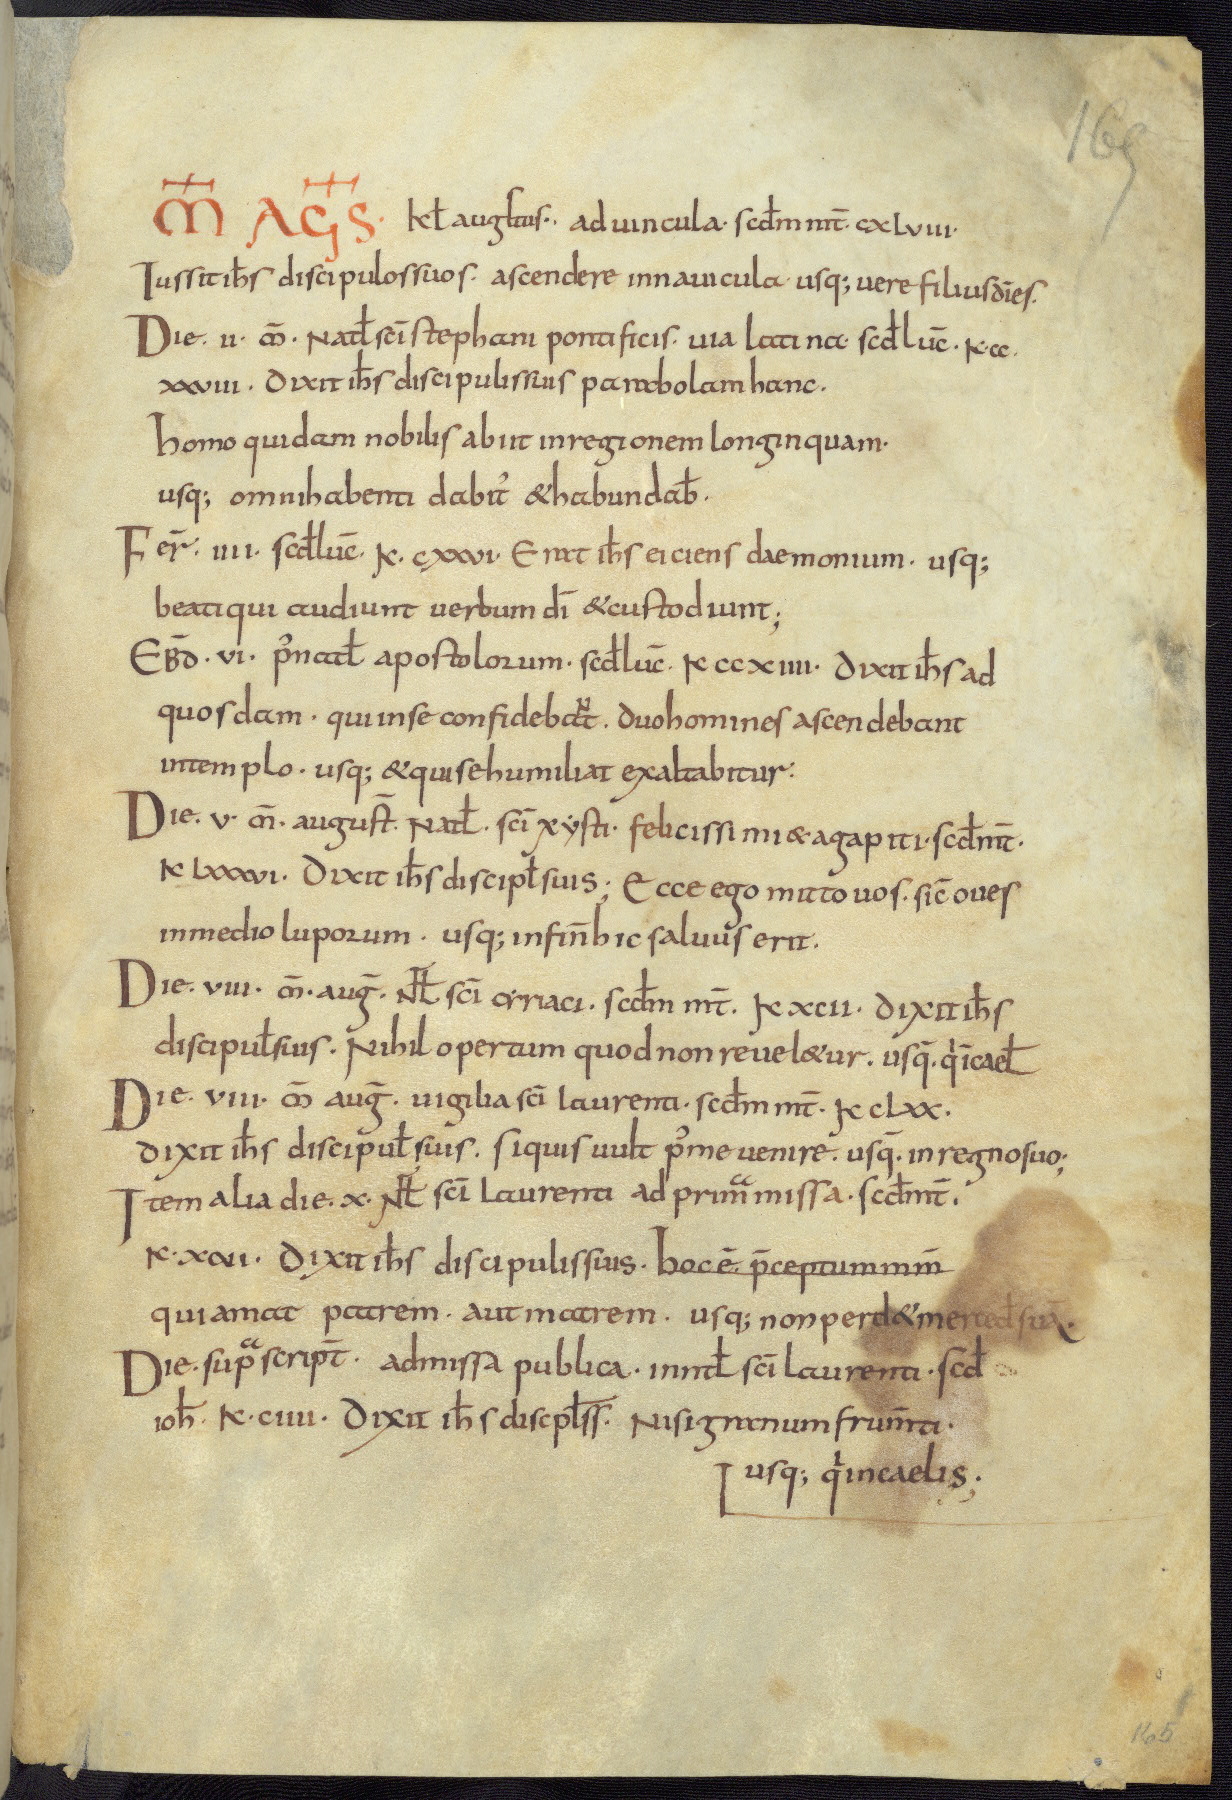 165
M̄ AḠS· kƚ augusti·. ad uincula· scdm mt̄· cxlviii·
Iussit ih̄s discipulos suos· ascendere in nauicula· usq; uere filius dī es·
Die· ii· m̄· Natƚ scī stephani pontificis· uia latina· scdƚ luc̄· k· cc·
xxviii· dixit ih̄s discipulis suis parabolam hanc·
homo quidam nobilis abiit in regionem longinquam·
usq; omni habenti dabit᷒ & habundab̄·
Fer̄· iiii· scdƚ luc̄· k· cxxvi· Erat ih̄s eiciens daemonium· usq;
beati qui audiunt uerbum dī & custodiunt;
EBD̄· vi· p᷒ natƚ apostolorum· scdƚ luc̄· k ccxiiii· dixit ih̄s ad
quosdam· qui in se confidebant· duo homines ascendebant
in templo· usq; & qui se humiliat exaltabitur·
Die· v· m̄· august̄· Natƚ· scī xysti· felicissimi & agapiti· scdƚ mt̄·
k lxxxvi· Dixit ih̄s discipƚ suis; Ecce ego mitto uos· sic̄ oues
in medio luporum· usq; in fin̄ hic saluus erit·
Die· viii· m̄· auḡ· Nƚ scī cyriaci· scdm mt̄· k xcii· dixit ih̄s
discipuƚ suis· Nihil opertum quod non reuel&ur· usq̄· qi in caeƚ
Die· viiii· m̄ auḡ· uigilia scī laurenti· scdm mt̄· k clxx·
dixit ih̄s discipuƚ suis· si quis uult p᷒ me uenire· usq̄· in regno suo;
Item alia die· x· Nƚ scī laurenti ad primā missa· scdƚ mt̄·
k· xcvii· dixit ih̄s discipulis suis· hoc ē p̄ceptum mm̄
qui amat patrem· aut matrem· usq; non perd& merced̄ suā·
Die· supᵃscript̄· ad missa publica· in natƚ scī laurenti· scdƚ
ioh̄· k· ciiii· Dixit ih̄s discipƚ s̄s̄· Nisi granum frum̄ti·
usq; qi in caelis;
165